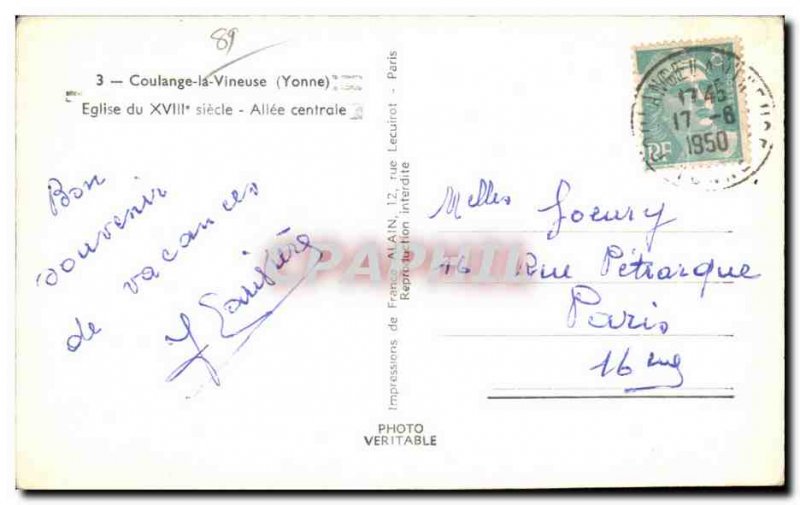 89
3 — Coulange-la-Vineuse (Yonne)
Eglise du XVIII° siècle - Allée centrale
Bon
souvenir
de vacances
Impressions de France ALAIN, 12, rue Lecuirot - Paris
Reproduction interdite
PHOTO
VERITABLE
17 45
17 -8
1950
RF
Melles
16 Rue Pétrarque
Paris
16me
CPAPHIL